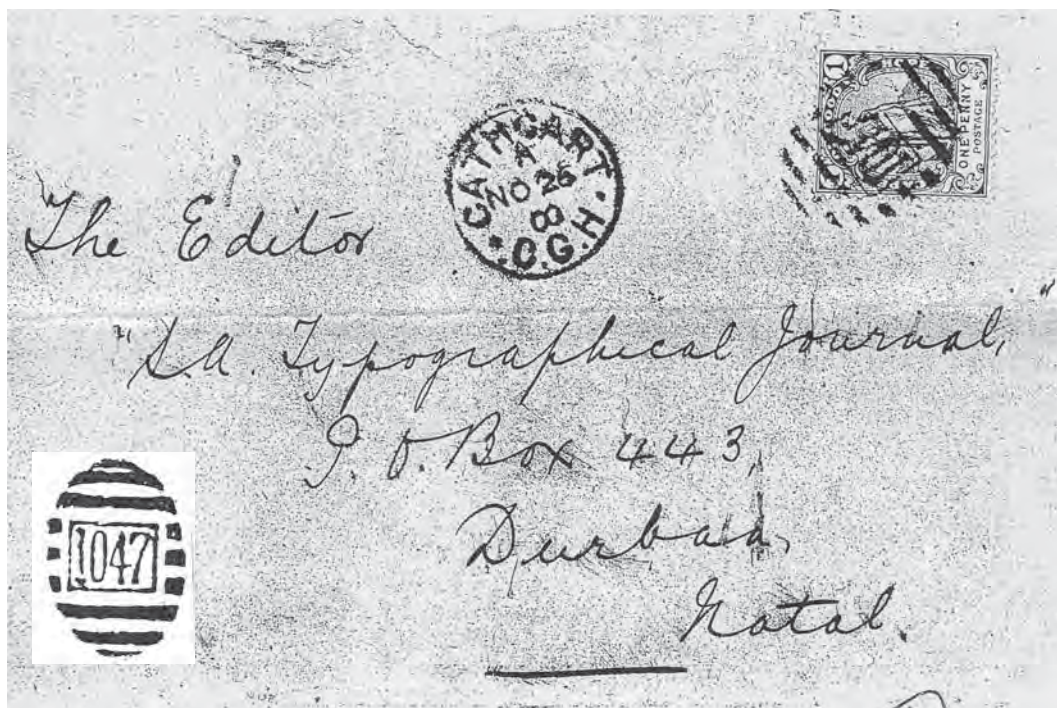 CATHCART
A
NO 26
8
C.G.H.
1
1
ONE PENNY
POSTAGE
The Editor
"S.A. Typographical Journal,"
P. O. Box 443,
Durban,
Natal.
1047